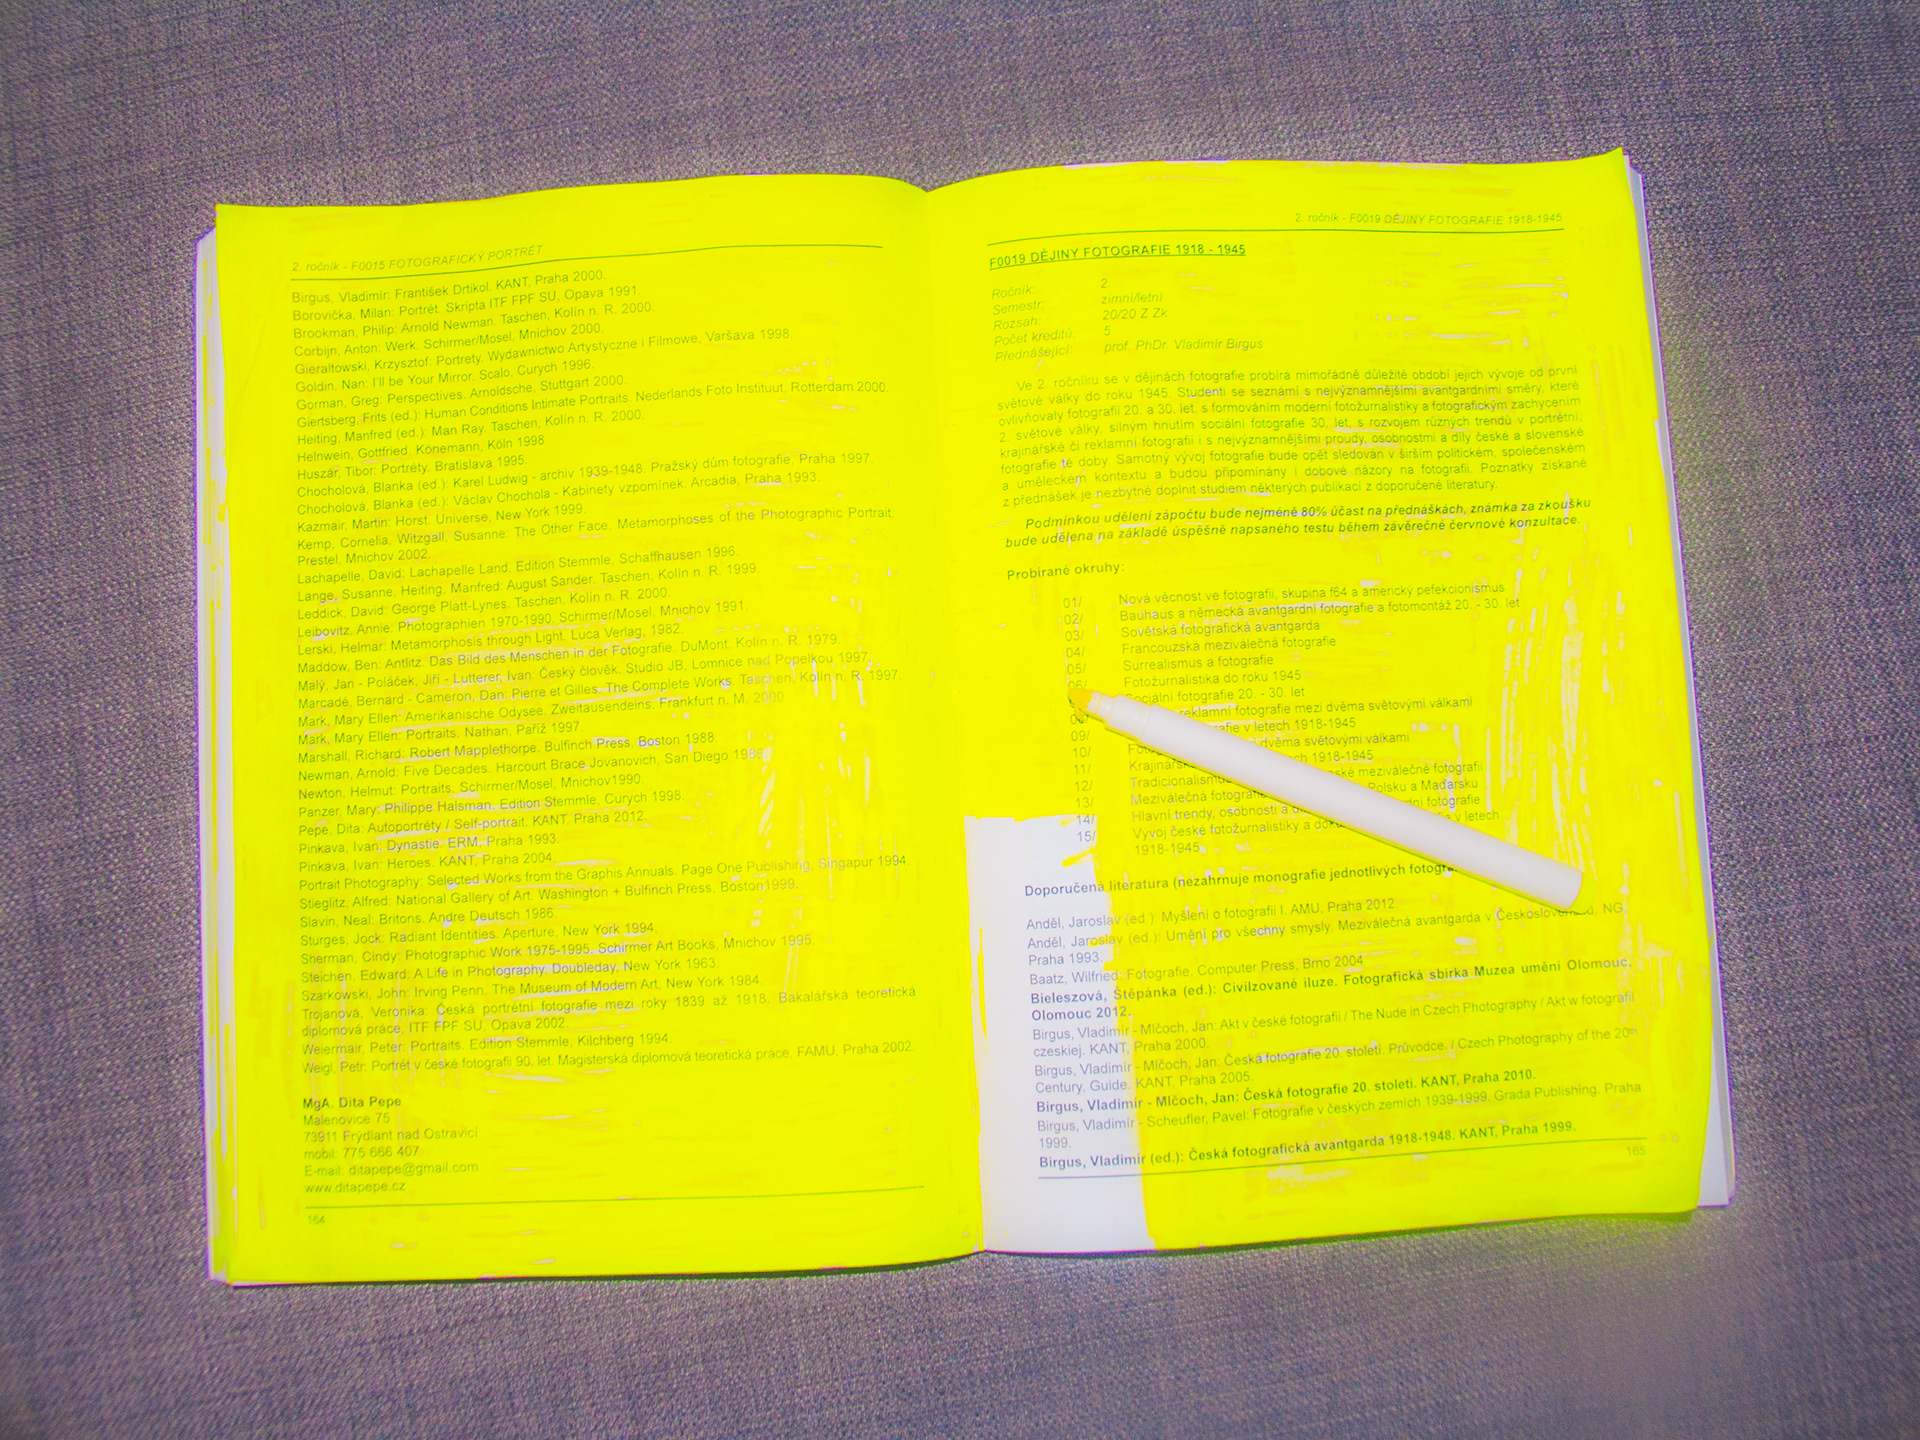 2. ročník - F0015 FOTOGRAFICKÝ PORTRÉT
Birgus, Vladimír: František Drtikol. KANT, Praha 2000.
Borovička, Milan: Portrét. Skripta ITF FPF SU, Opava 1991.
Brookman, Philip: Arnold Newman. Taschen, Kolín n. R. 2000.
Corbijn, Anton: Werk. Schirmer/Mosel, Mnichov 2000.
Gieraltowski, Krzysztof: Portrety. Wydawnictwo Artystyczne i Filmowe, Varšava 1998.
Goldin, Nan: I'll be Your Mirror. Scalo, Curych 1996.
Gorman, Greg: Perspectives. Arnoldsche, Stuttgart 2000.
Giertsberg, Frits (ed.): Human Conditions Intimate Portraits. Nederlands Foto Instituut, Rotterdam 2000.
Heiting, Manfred (ed.): Man Ray. Taschen, Kolín n. R. 2000.
Helnwein, Gottfried. Könemann, Köln 1998
Huszár, Tibor: Portréty. Bratislava 1995.
Chocholová, Blanka (ed.): Karel Ludwig - archiv 1939-1948. Pražský dům fotografie, Praha 1997.
Chocholová, Blanka (ed.): Václav Chochola - Kabinety vzpomínek. Arcadia, Praha 1993.
Kazmair, Martin: Horst. Universe, New York 1999.
Kemp, Cornelia, Witzgall, Susanne: The Other Face. Metamorphoses of the Photographic Portrait.
Prestel, Mnichov 2002.
Lachapelle, David: Lachapelle Land, Edition Stemmle, Schaffhausen 1996.
Lange, Susanne, Heiting, Manfred: August Sander. Taschen, Kolín n. R. 1999.
Leddick, David: George Platt-Lynes. Taschen, Kolín n. R. 2000.
Leibovitz, Annie: Photographien 1970-1990, Schirmer/Mosel, Mnichov 1991.
Lerski, Helmar: Metamorphosis through Light. Luca Verlag, 1982.
Maddow, Ben: Antlitz. Das Bild des Menschen in der Fotografie. DuMont. Kolín n. R. 1979.
Malý, Jan - Poláček, Jiří - Lutterer, Ivan: Český člověk. Studio JB, Lomnice nad Popelkou 1997.
Marcadé, Bernard - Cameron, Dan: Pierre et Gilles. The Complete Works. Taschen, Kolín n. R. 1997.
Mark, Mary Ellen: Amerikanische Odysee. Zweitausendeins, Frankfurt n. M. 2000.
Mark, Mary Ellen: Portraits. Nathan, Paříž 1997.
Marshall, Richard: Robert Mapplethorpe. Bulfinch Press, Boston 1988
Newman, Arnold: Five Decades. Harcourt Brace Jovanovich, San Diego 1986.
Newton, Helmut: Portraits. Schirmer/Mosel, Mnichov1990.
Panzer, Mary: Philippe Halsman. Edition Stemmle, Curych 1998.
Pepe, Dita: Autoportréty / Self-portrait. KANT, Praha 2012.
Pinkava, Ivan: Dynastie. ERM, Praha 1993.
Pinkava, Ivan: Heroes. KANT, Praha 2004.
Portrait Photography: Selected Works from the Graphis Annuals. Page One Publishing, Singapur 1994.
Stieglitz, Alfred: National Gallery of Art. Washington + Bulfinch Press, Boston1999.
Slavin, Neal: Britons. Andre Deutsch 1986.
Sturges, Jock: Radiant Identities. Aperture, New York 1994.
Sherman, Cindy: Photographic Work 1975-1995. Schirmer Art Books, Mnichov 1995.
Steichen, Edward: A Life in Photography. Doubleday, New York 1963.
Szarkowski, John: Irving Penn. The Museum of Modern Art, New York 1984.
Trojanová, Veronika: Česká portrétní fotografie mezi roky 1839 až 1918. Bakalářská teoretická
diplomová práce, ITF FPF SU, Opava 2002.
Weiermair, Peter: Portraits. Edition Stemmle, Kilchberg 1994.
Weigl, Petr: Portrét v české fotografii 90. let. Magisterská diplomová teoretická práce, FAMU, Praha 2002.
MgA. Dita Pepe
Malenovice 75
73911 Frýdlant nad Ostravicí
mobil: 775 666 407
E-mail: ditapepe@gmail.com
www.ditapepe.cz
164
2. ročník - F0019 DĚJINY FOTOGRAFIE 1918-1945
F0019 DĚJINY FOTOGRAFIE 1918 - 1945
Ročník: 2.
Semestr: zimní/letní
Rozsah: 20/20 Z Zk
Počet kreditů: 5
Přednášející: prof. PhDr. Vladimír Birgus
Ve 2. ročníku se v dějinách fotografie probírá mimořádně důležité období jejich vývoje od první
světové války do roku 1945. Studenti se seznámí s nejvýznamnějšími avantgardními směry, které
ovlivňovaly fotografii 20. a 30. let, s formováním moderní fotožurnalistiky a fotografickým zachycením
2. světové války, silným hnutím sociální fotografie 30. let, s rozvojem různých trendů v portrétní,
krajinářské či reklamní fotografii i s nejvýznamnějšími proudy, osobnostmi a díly české a slovenské
fotografie té doby. Samotný vývoj fotografie bude opět sledován v širším politickém, společenském
a uměleckém kontextu a budou připomínány i dobové názory na fotografii. Poznatky získané
z přednášek je nezbytné doplnit studiem některých publikací z doporučené literatury.
Podmínkou udělení zápočtu bude nejméně 80% účast na přednáškách, známka za zkoušku
bude udělena na základě úspěšně napsaného testu během závěrečné červnové konzultace.
Probírané okruhy:
01/ Nová věcnost ve fotografii, skupina f64 a americký pefekcionismus
02/ Bauhaus a německá avantgardní fotografie a fotomontáž 20. - 30. let
03/ Sovětská fotografická avantgarda
04/ Francouzská meziválečná fotografie
05/ Surrealismus a fotografie
06/ Fotožurnalistika do roku 1945
Sociální fotografie 20. - 30. let
reklamní fotografie mezi dvěma světovými válkami
09/ v letech 1918-1945
10/ dvěma světovými válkami
11/ 1918-1945
12/ meziválečné fotografii
13/ Meziválečná Polsku a Maďarsku
14/ Hlavní trendy, osobnosti a fotografie
15/ Vývoj české fotožurnalistiky a v letech
1918-1945
Doporučená literatura (nezahrnuje monografie jednotlivých
Anděl, Jaroslav (ed.): Myšlení o fotografii I. AMU, Praha 2012
Anděl, Jaroslav (ed.): Umění pro všechny smysly. Meziválečná avantgarda v Československu. NG,
Praha 1993.
Baatz, Wilfried: Fotografie. Computer Press, Brno 2004
Bieleszová, Štěpánka (ed.): Civilzované iluze. Fotografická sbírka Muzea umění Olomouc,
Olomouc 2012.
Birgus, Vladimír - Mlčoch, Jan: Akt v české fotografii / The Nude in Czech Photography / Akt w fotografii
czeskiej. KANT, Praha 2000.
Birgus, Vladimír - Mlčoch, Jan: Česká fotografie 20. století. Průvodce. / Czech Photography of the 20th
Century. Guide. KANT, Praha 2005.
Birgus, Vladimír - Mlčoch, Jan: Česká fotografie 20. století. KANT, Praha 2010.
Birgus, Vladimír - Scheufler, Pavel: Fotografie v českých zemích 1939–1999. Grada Publishing. Praha
1999.
Birgus, Vladimír (ed.): Česká fotografická avantgarda 1918-1948. KANT, Praha 1999.
165